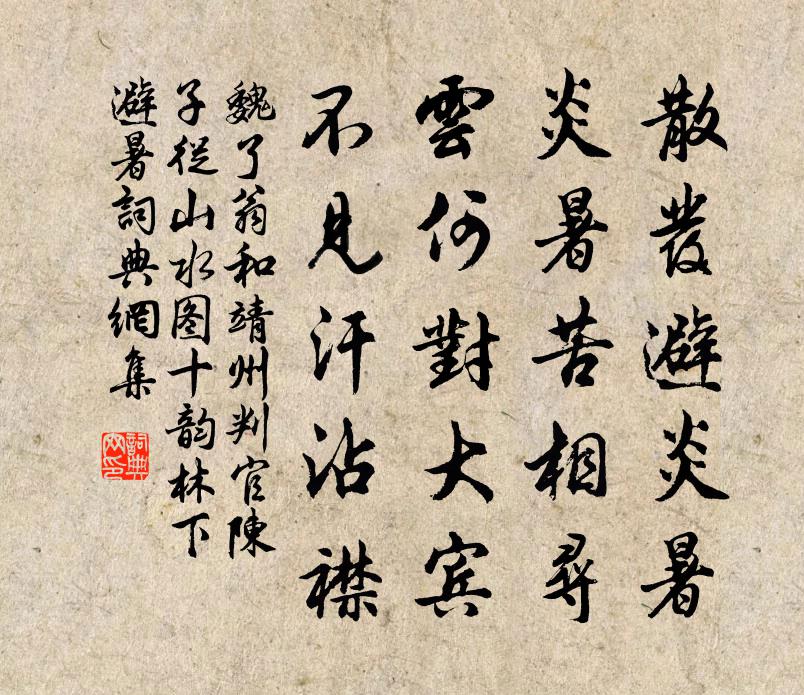 散發避炎暑
炎暑苦相尋
雲何對大賓
不見汗沾襟
魏了翁和靖州判官陳
子從山水图十韵林下
避暑詞典網集
詞典網印